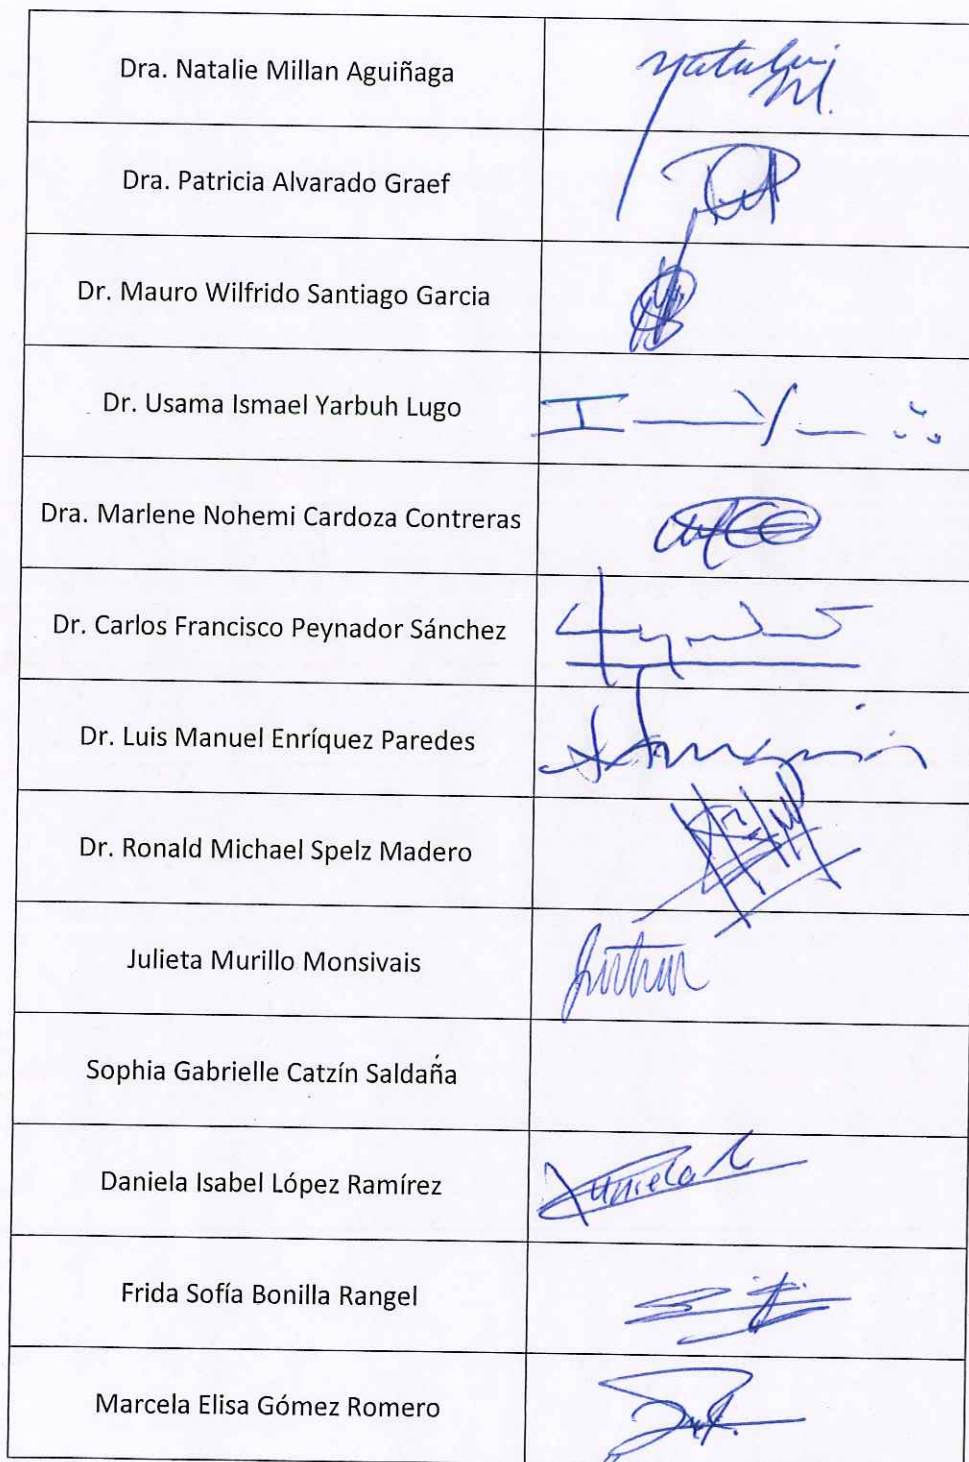 Dra. Natalie Millan Aguiñaga
Dra. Patricia Alvarado Graef
Dr. Mauro Wilfrido Santiago Garcia
Dr. Usama Ismael Yarbuh Lugo
Dra. Marlene Nohemi Cardoza Contreras
Dr. Carlos Francisco Peynador Sánchez
Dr. Luis Manuel Enríquez Paredes
Dr. Ronald Michael Spelz Madero
Julieta Murillo Monsivais
Sophia Gabrielle Catzín Saldaña
Daniela Isabel López Ramírez
Frida Sofía Bonilla Rangel
Marcela Elisa Gómez Romero